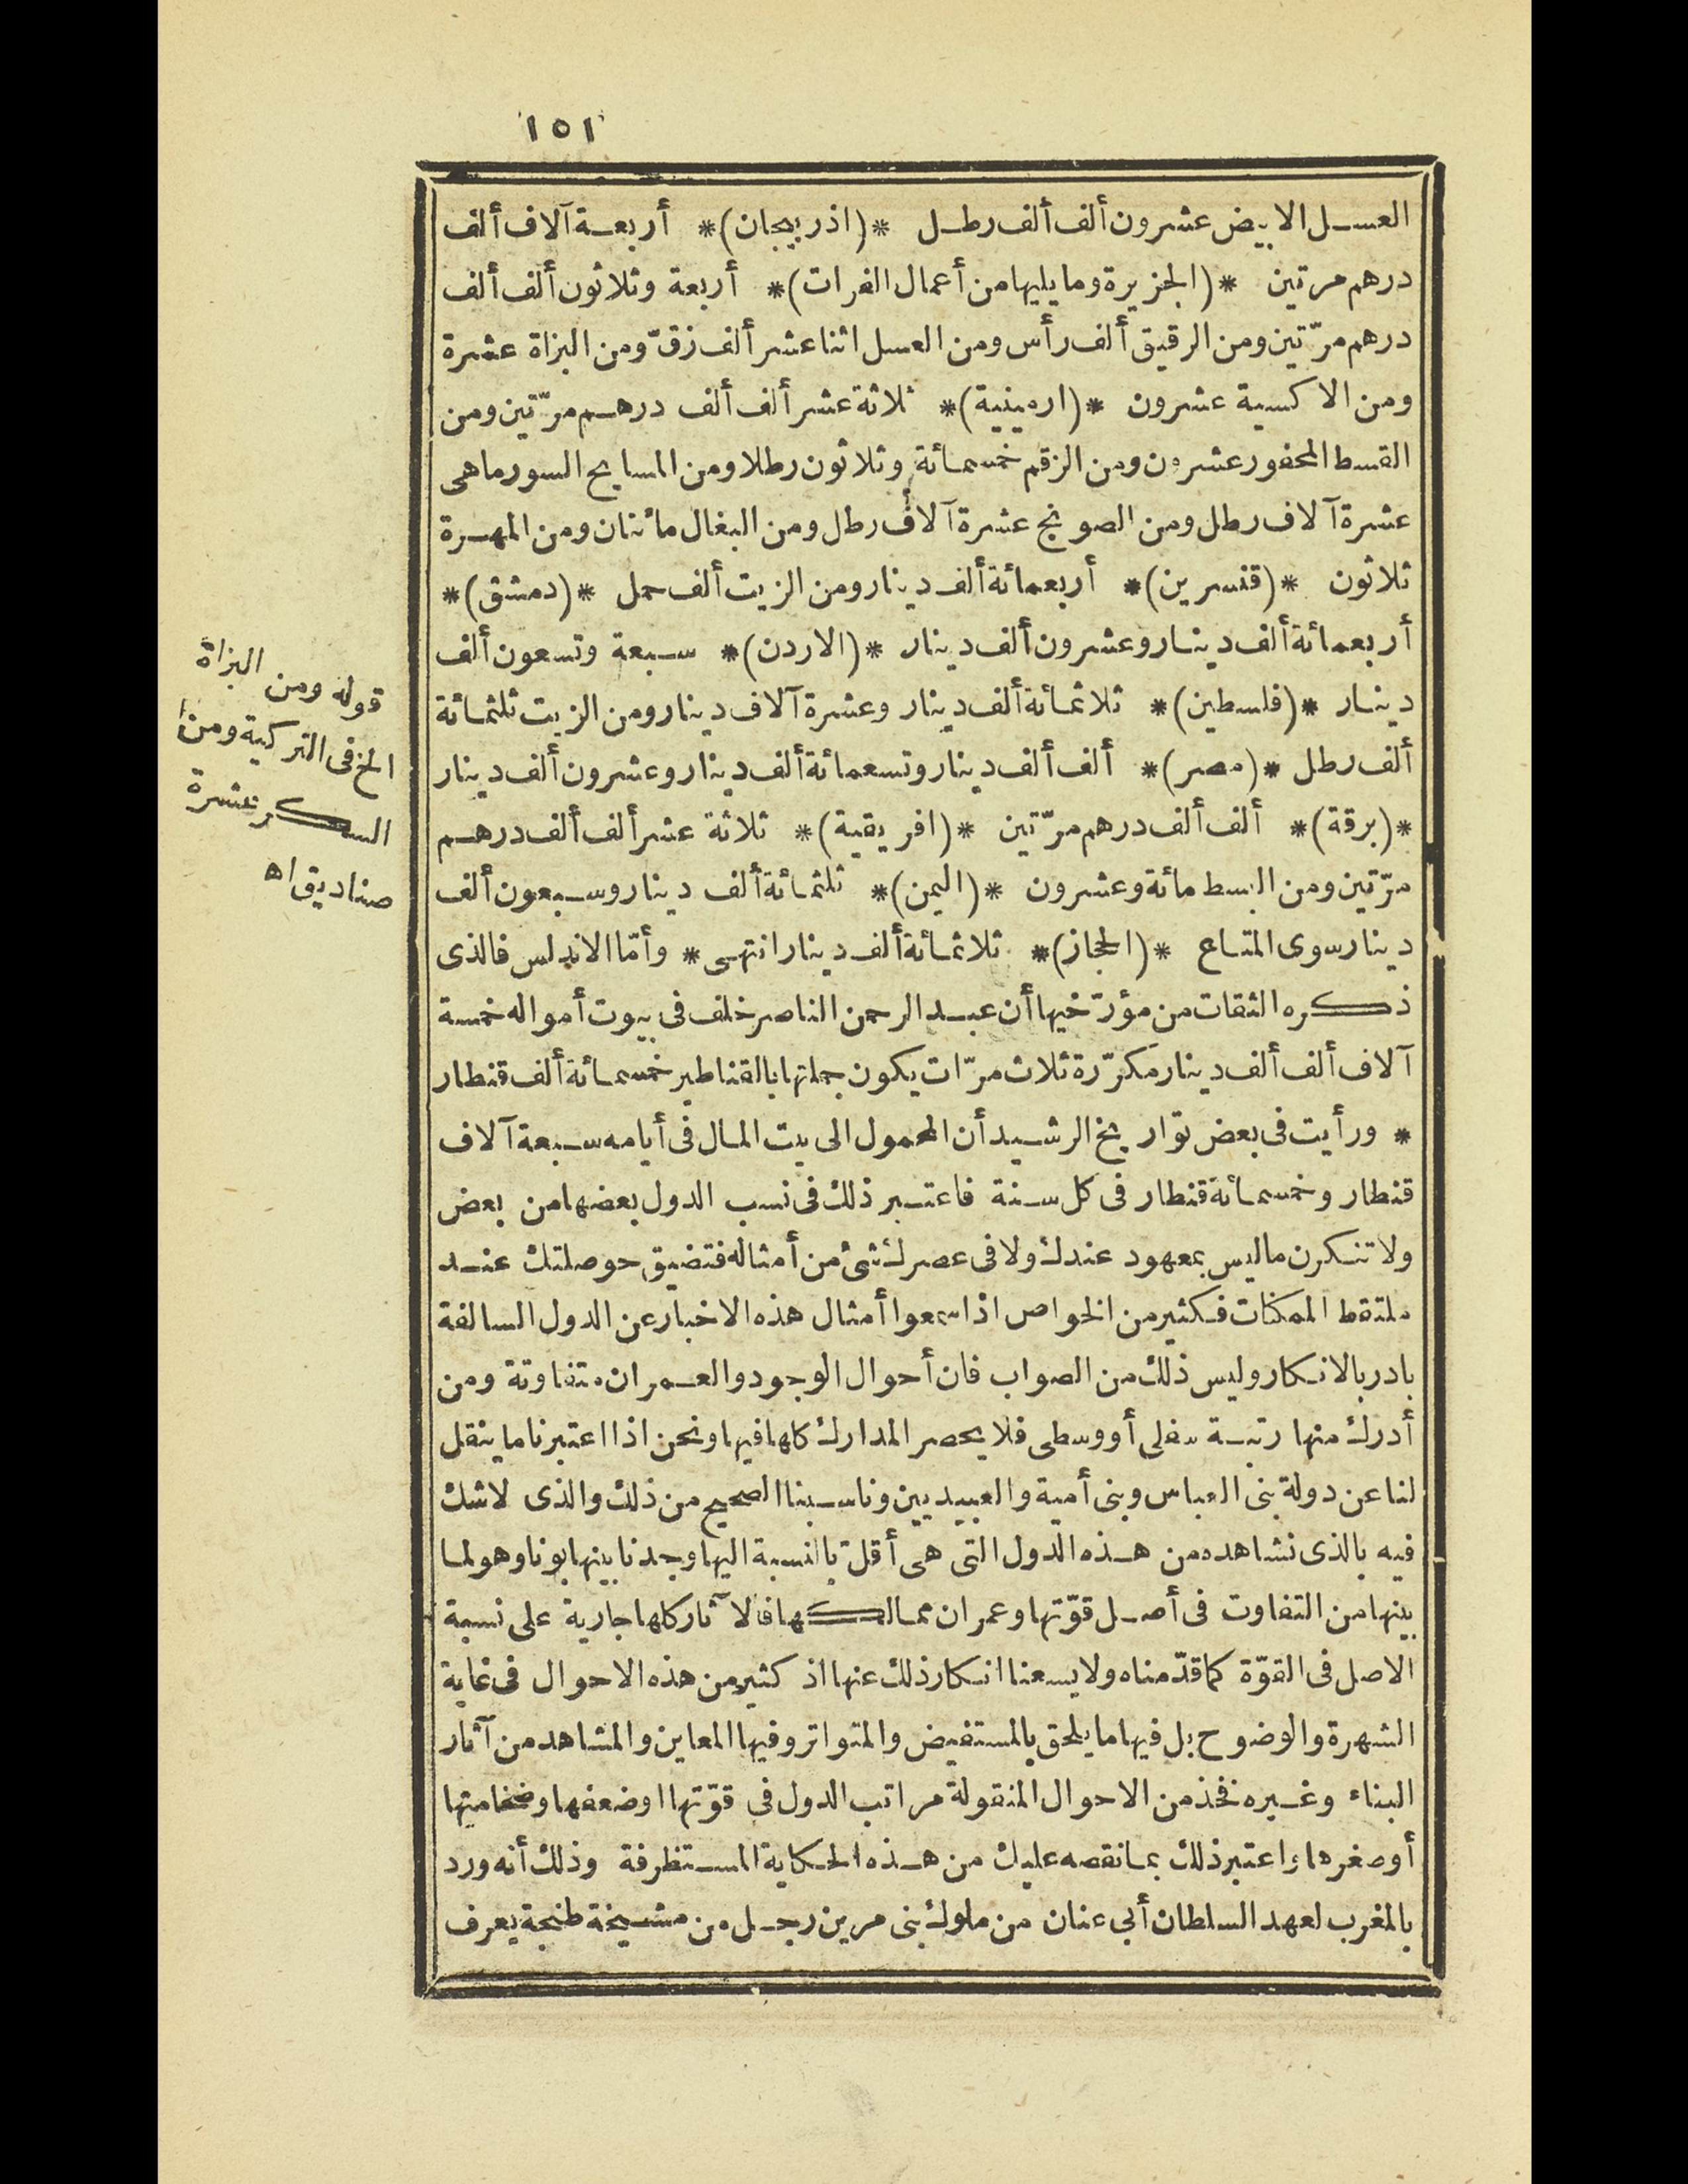 ١٥١
العسل الابيض عشرون ألف ألف رطل * (اذربيجان) * أربعة آلاف ألف
درهم مرتين * (الجزيرة وما يليها من أعمال الفرات) * أربعة وثلاثون ألف ألف
درهم مرّتين ومن الرقيق ألف رأس ومن العسل اثنا عشر ألف زقّ ومن البزاة عشرة
ومن الاكسية عشرون * (ارمينية) * ثلاثة عشر ألف ألف درهم مرّتين ومن
القسط المحفور عشرون ومن الزقم خمسمائة وثلاثون رطلا ومن المسايح السورماهى
عشرة آلاف رطل ومن الصونج عشرة آلاف رطل ومن البغال مائتان ومن المهرة
ثلاثون * (قنسرين) * أربعمائة ألف دينار ومن الزيت ألف حمل * (دمشق) *
أربعمائة ألف دينار وعشرون ألف دينار * (الاردن) * سبعة وتسعون ألف
دينار * (فلسطين) * ثلاثمائة ألف دينار وعشرة آلاف دينار ومن الزيت ثلثمائة
ألف رطل * (مصر) * ألف ألف دينار وتسعمائة ألف دينار وعشرون ألف دينار
* (برقة) * ألف ألف درهم مرّتين * (افريقية) * ثلاثة عشر ألف ألف درهم
مرّتين ومن البسط مائة وعشرون * (اليمن) * ثلثمائة ألف دينار وسبعون ألف
دينار سوى المتاع * (الحجاز) * ثلاثمائة ألف دينار انتهى * وأمّا الاندلس فالذى
ذكره الثقات من مؤرّخيها أن عبد الرحمن الناصر خلف فى بيوت أمواله خمسة
آلاف ألف ألف دينار مكرّرة ثلاث مرّات يكون جملتها بالقناطير خمسمائة ألف قنطار
* ورأيت فى بعض تواريخ الرشيد أن المحمول الى بيت المال فى أيامه سبعة آلاف
قنطار وخمسمائة قنطار فى كل سنة فاعتبر ذلك فى نسب الدول بعضها من بعض
ولا تنكرن ما ليس بمعهود عندك ولا فى عصرك شئ من أمثاله فتضيق حوصلتك عند
ملتقط الممكنات فكثير من الخواص اذا سمعوا أمثال هذه الاخبار عن الدول السالفة
بادر بالانكار وليس ذلك من الصواب فان أحوال الوجود والعمران متفاوتة ومن
أدرك منها رتبة سفلى أو وسطى فلا يحصر المدارك كلها فيها ونحن اذا اعتبرنا ما ينقل
لنا عن دولة بنى العباس وبنى أمية والعبيديين وناسبنا الصحيح من ذلك والذى لا شك
فيه بالذى نشاهده من هذه الدول التى هى أقلّ بالنسبة اليها وجدنا بينها بونا وهو لما
بينها من التفاوت فى أصل قوّتها وعمران ممالكها فالآثار كلها جارية على نسبة
الاصل فى القوّة كما قدّمناه ولا يسعنا انكار ذلك عنها اذ كثير من هذه الاحوال فى غاية
الشهرة والوضوح بل فيها ما يلحق بالمستفيض والمتواتر وفيها المعاين والمشاهد من آثار
البناء وغيره فخذ من الاحوال المنقولة مراتب الدول فى قوّتها اوضعفها وضخامتها
أو صغرها واعتبر ذلك بما نقصه عليك من هذه الحكاية المستظرفة وذلك أنه ورد
بالمغرب لعهد السلطان أبى عنان من ملوك بنى مرين رجل من مشيخة طنجة يعرف
قوله ومن البزاة
الخ فى التركية ومن
السكر عشرة
صناديق اه